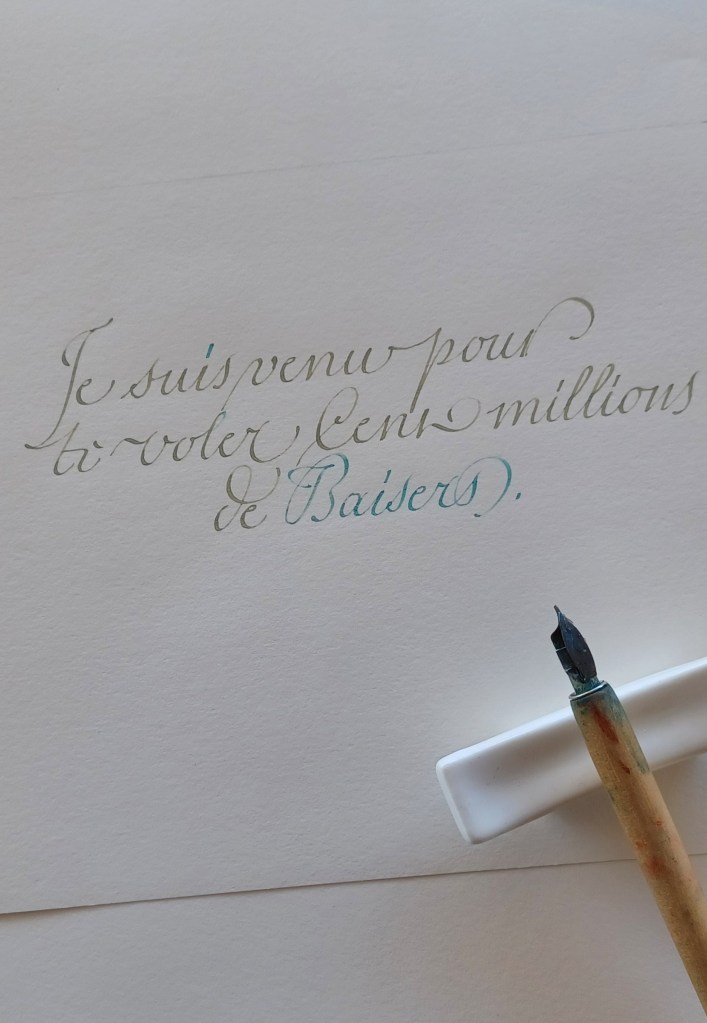 Je suis venu pour
te voler Cent millions
de Baisers.